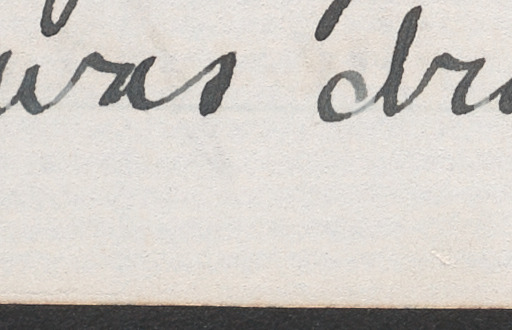 was dri